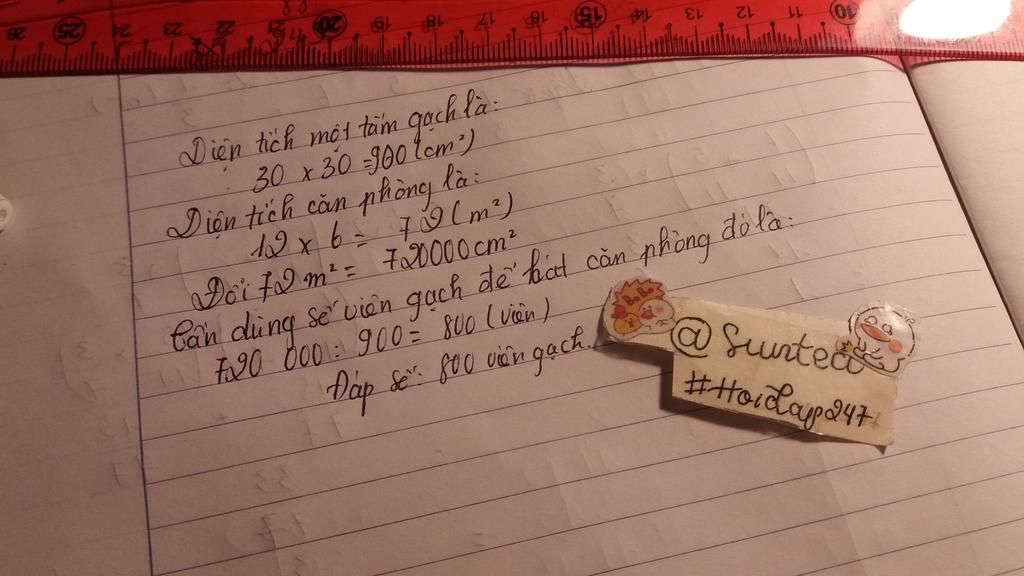 26 25 24 23 22 20 19 18 17 16 15 14 13 12 11 10
Diện tích một tấm gạch là:
30 x 30 = 900 (cm²)
Diện tích căn phòng là:
12 x 6 = 72 (m²)
Đổi 72 m² = 720000 cm²
Cần dùng số viên gạch để lót căn phòng đó là:
720 000 : 900 = 800 (viên)
Đáp số: 800 viên gạch.
@Suntea
#Hoidap247